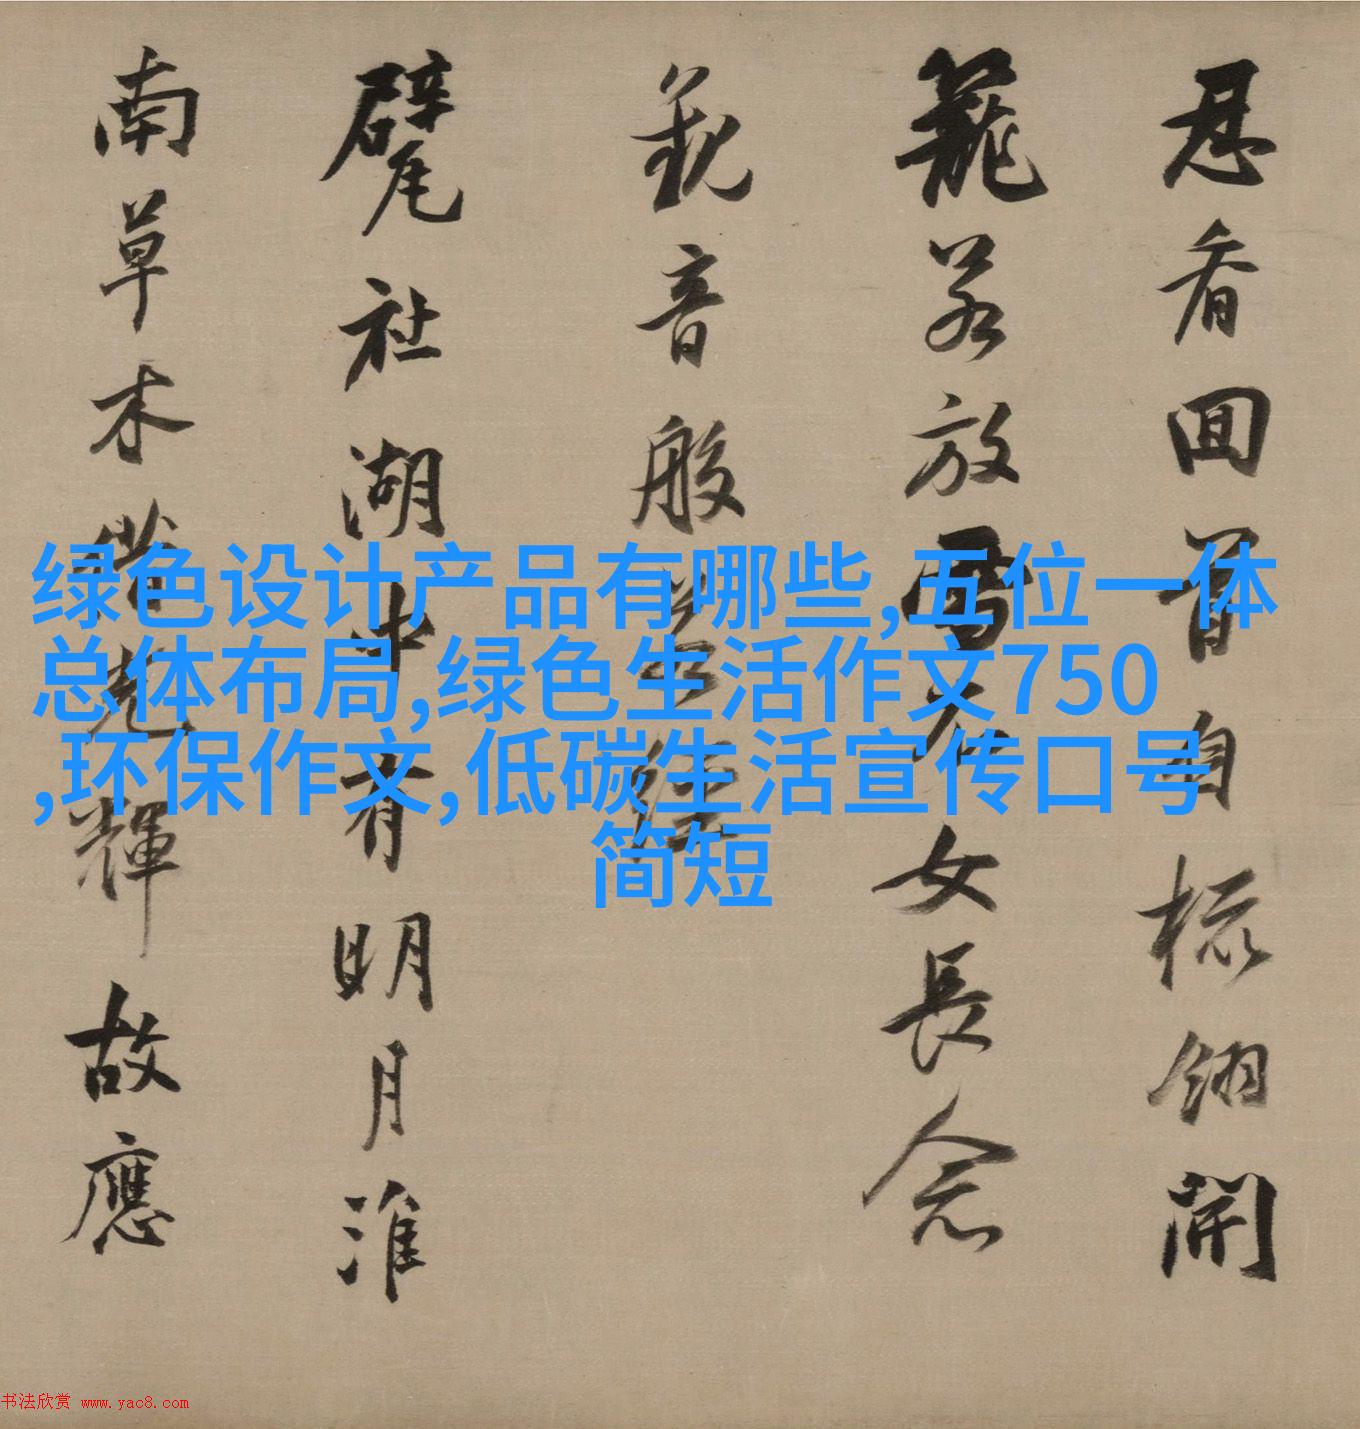 忍看回首自梳翎開
籠若放雪衣女長念
觀音般若經
甓社湖中有明月淮
南草木借光輝故應
绿色设计产品有哪些,五位一体
总体布局,绿色生活作文750
,环保作文,低碳生活宣传口号
简短
书法欣赏 www.yac8.com